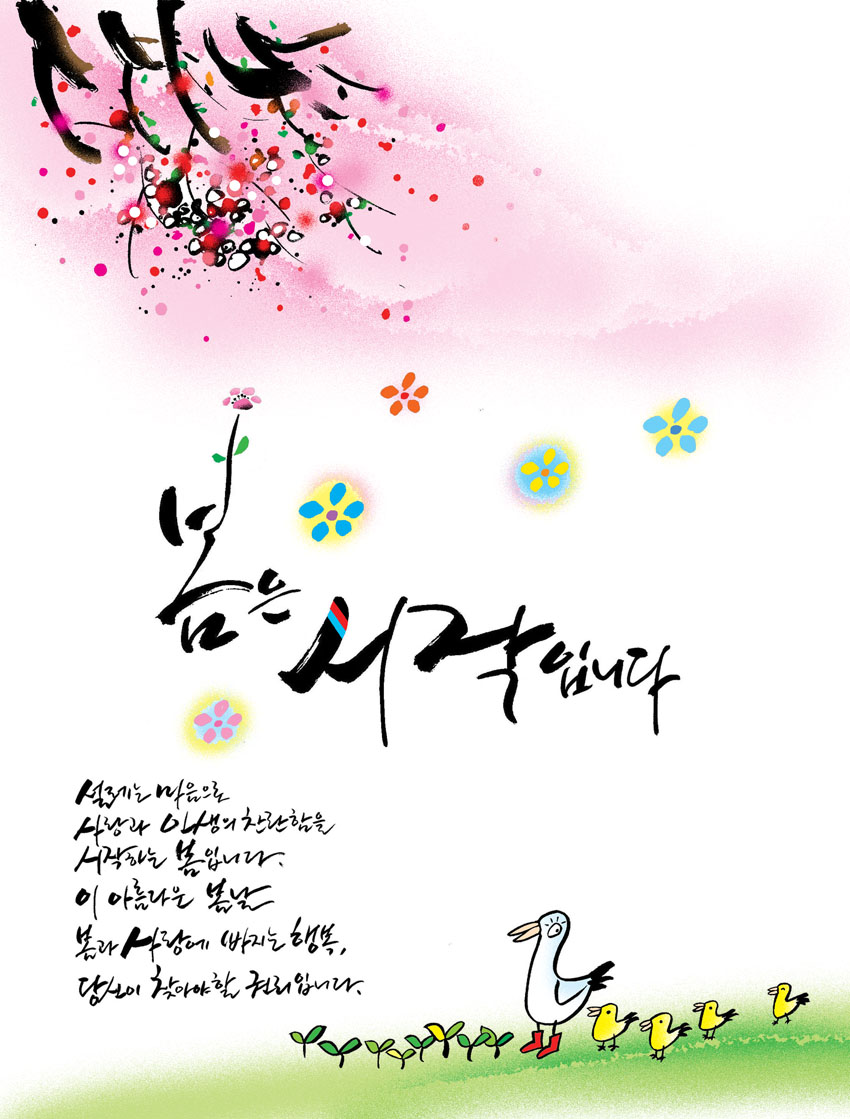 봄은 시작입니다
설레는 마음으로
사랑과 인생의 찬란함을
시작하는 봄입니다.
이 아름다운 봄날
봄과 사랑에 빠지는 행복,
당신이 찾아야할 권리입니다.